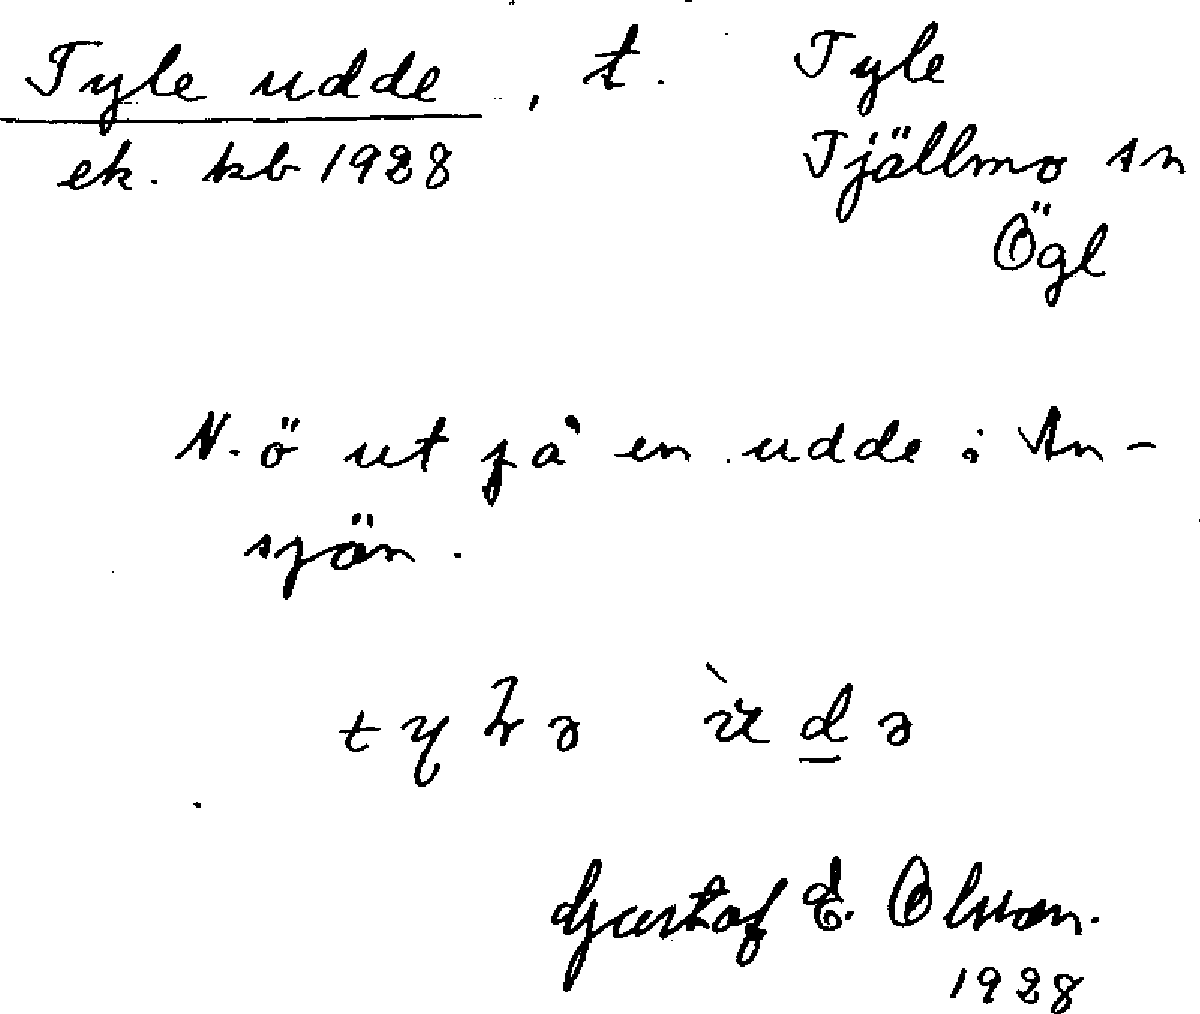 Tyle udde, t. Tyle
ek. kb 1928 Tjällmo sn
Ögl
N.ö ut på en udde i An-
sjön.
tyɬə ùdə
Gustaf E. Olsson.
1928